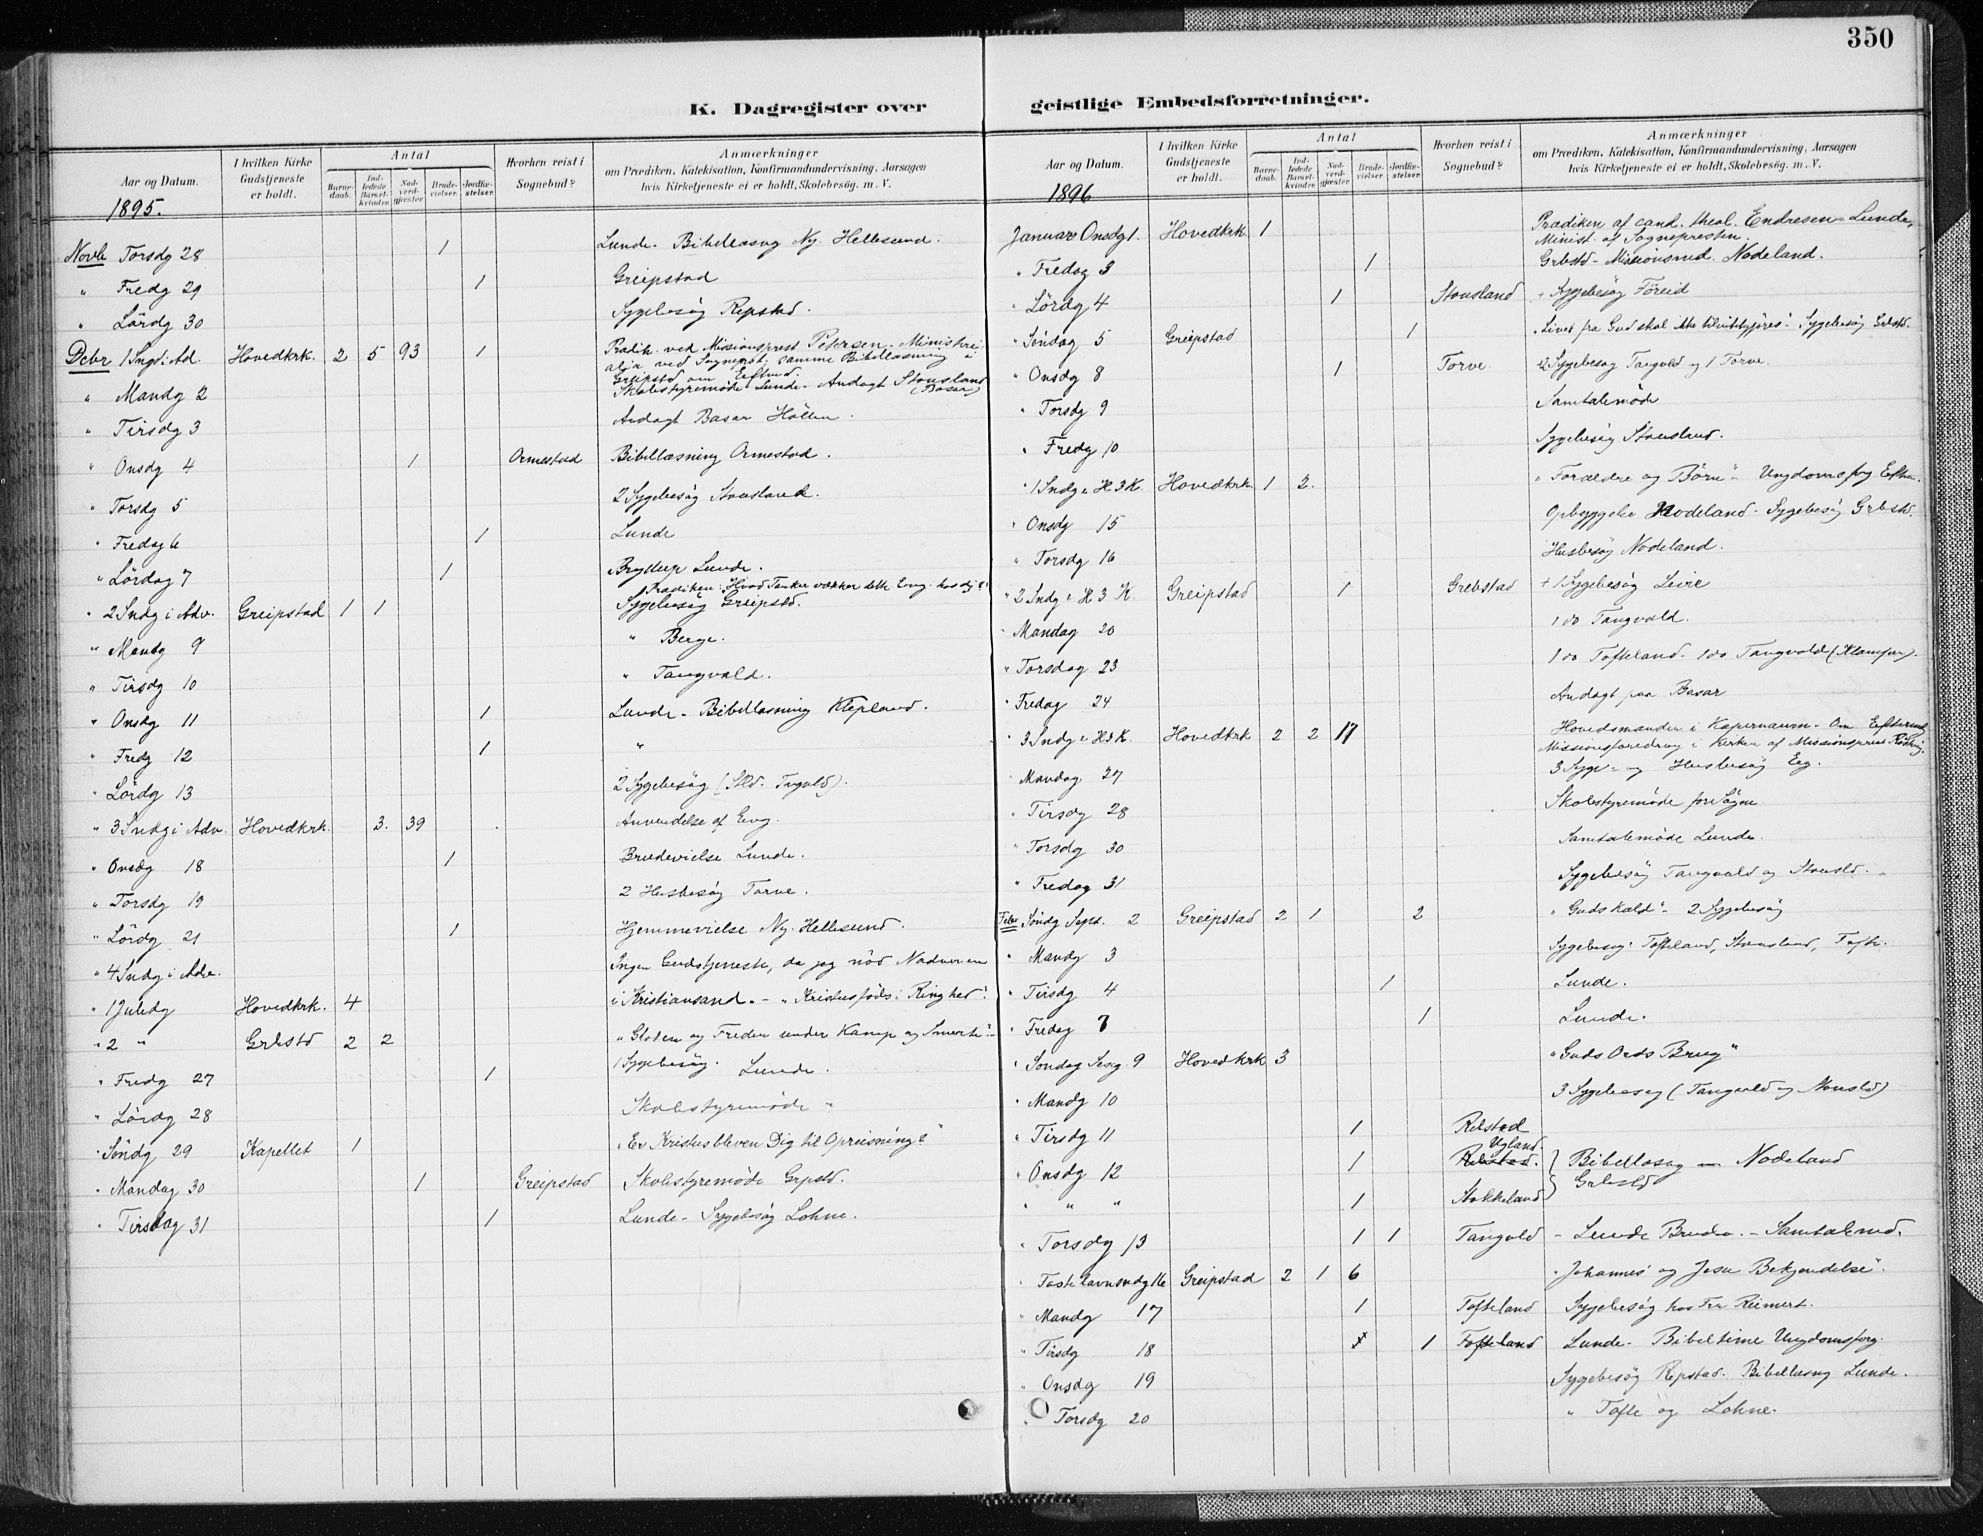 350
K. Dagregister over
geistlige Embedsforretninger.
Aar og Datum.
I hvilken Kirke Gudstjeneste er holdt.
Antal
Barne-daab.
Ind-ledede Barsel-kvinder.
Nad-verd-gjester
Brude-vielser
Jordfæ-stelser.
Hvorhen reist i Sognebud?
Anmærkninger
om Prædiken, Katekisation, Konfirmandundervisning, Aarsagen
hvis Kirketjeneste ei er holdt, Skolebesøg, m. V.
1895.
Novbr Torsdg 28 1 Lunde - Bibellæsng Ny. Hellesund.
" Fredg 29 1 Greipstad
" Lördg 30 Sygebesög Repstad.
Dcbr 1 Sngd i Ad. Hovedkrk. 2 5 93 1 Prædik. ved Missionsprest Petersen - Ministeri-
alia ved Sognepr. samme Bibellæsning i
Greipstd om Eftmd.
" Mandg 2 Skolestyremøde Lunde - Andagt Stousland (Basar)
" Tirsdg 3 Andagt Basar Höllen.
" Onsdg 4 1 Ormestad Bibellæsning Ormestad.
" Torsdg 5 2 Sygebesög Stousland.
" Fredag 6 1 Lunde
" Lördag 7 1 Bryllup Lunde.
" 2 Sndg i Adv. Greipstad 1 1 Prædiken: Hvad Tanker vækker dette Evg. hos dig?
Sygebesög Greipstd.
" Mandg 9 " Berge.
" Tirsdg 10 " Tangvald.
" Onsdg 11 1 Lunde - Bibellæsning Klepland.
" Fredg 12 1 "
" Lördg 13 2 Sygebesög (Stld. Tngvald).
" 3 Sndg i Adv. Hovedkrk. 3. 39 Anvendelse af Evg.
" Onsdg 18 1 Brudevielse Lunde.
" Torsdg 19 2 Husbesög Torve.
" Lördg 21 1 Hjemmevielse Ny. Hellesund.
" 4 Sndg i Adv. Ingen Gudstjeneste, da jeg nöd Nadveren
" 1 Juledg Hovedkrk. 4 i Kristiansand. - "Kristus föds i Ringhed".
" 2 " Grbstd 2 2 "Glæden og Freden under Kamp og Smerte" -
1 Sygebesög.
" Fredg 27 1 Lunde.
" Lördg 28 Skolestyremöde "
" Söndg 29 Kapellet 1 "Er Kristus bleven Dig til Opreisning?"
" Mandag 30 1 Greipstad Skolestyremöde Grpstd.
" Tirsdag 31 1 Lunde - Sygebesög Lohne.
Aar og Datum.
I hvilken Kirke Gudstjeneste er holdt.
Antal
Barne-daab.
Ind-ledede Barsel-kvinder.
Nad-verd-gjester
Brude-vielser
Jordfæ-stelser.
Hvorhen reist i Sognebud?
Anmærkninger
om Prædiken, Katekisation, Konfirmandundervisning, Aarsagen
hvis Kirketjeneste ei er holdt, Skolebesøg, m. V.
1896
Januar Onsdg 1. Hovedkrk 1 Prædiken af cand. theol. Endresen - Lunde,
Minist. af Sognepresten.
" Fredag 3 1 Grbstd - Missionsmd. Nodeland.
" Lördg 4 1 Stousland + Sygebesög Föreid
" Söndag 5 Greipstad 1 Sygebesög Grbstd.
" Onsdg 8 1 Torve 2 Sygebesög Tangvald og 1 Torve
" Torsdg 9 Samtalemöde
" Fredag 10 Sygebesög Stousland.
" 1 Sndg e H3K. Hovedkrk. 1 2. "Forældre og Börn" - Ungdomsforg Eftm.
" Onsdg 15 Opbyggelse Nodeland - Sygebesög Grbstd.
" Torsdg 16 Husbesög Nodeland.
" 2 Sndg e H 3 K. Greipstad 1 Grebstad + 1 Sygebesög Leire
" Mandag 20 1 do Tangvald.
" Torsdag 23 1 do Tofteland - 1 do Tangvald
" Fredag 24 Andagt paa Basar
" 3 Sndg e H3K. Hovedkrk 2 2 17 Hovedsmanden i Kapernaum - Om Eftermd
Missionsforedrag i Kirken af Missionsprest
" Mandag 27 3 Syge- og Husbesög Eeg.
" Tirsdg 28 Skolestyremöde for Sögne
" Torsdg 30 Samtalemöde Lunde.
" Fredag 31 Sygebesög Tangvald og Stousld.
Febr Söndg Sept. 2 Greipstad 2 1 2 "Guds Kald" - 2 Sygebesög
" Mandg 3 Sygebesög: Tofteland, Stousland, Tofte.
" Tirsdg 4 1 Lunde.
" Fredag 7 1 Lunde.
" Söndag Sexg. 9 Hovedkrk 3 "Guds Ords Brug"
" Mandg 10 3 Sygebesög (Tangvald og Stousld)
" Tirsdg 11 1 Rebstad
" Onsdg 12 1 Ugland Rebstad. Bibellæsng - Nodeland
" " " 1 Stokkeland Grbstd
" Torsdg 13 1 1 Tangvld - Lunde Brudev. - Samtalemd.
" Fastelavnsndg 16 Greipstad 2 1 6 "Johannes' og Jesu Bekjendelse".
" Mandg 17 1 Tofteland Sygebesög hos Fru Reimert.
" Tirsdg 18 1 1 Tofteland Lunde - Bibeltime Ungdomsforg.
" Onsdg 19 Sygebesög Repstad. Bibellæsng Lunde.
" Torsdg 20 " Tofte og Lohne.